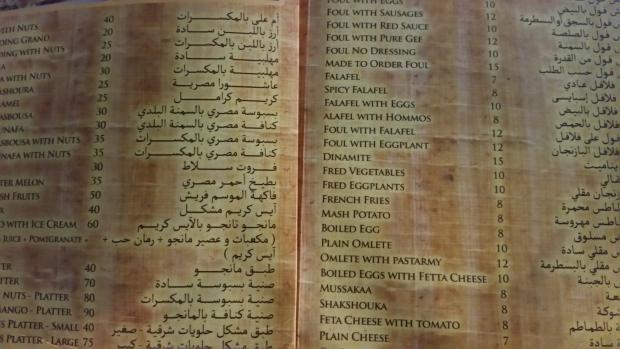 NUTS 40 أم على بالمكسرات
DING GRAND 20 أرز باللبن سادة
DING WITH NUTS 30 أرز باللبن بالمكسرات
20 مهلبية سادة
A WITH NUTS 30 مهلبية بالمكسرات
ASHOURA 25 عاشورا مصرية
AMEL 25 كريم كرامل
ASBOUSA 30 بسبوسة مصري بالسمنة البلدي
UNAFA 30 كنافة مصري بالسمنة البلدي
ASBOUSA WITH NUTS 35 بسبوسة مصري بالمكسرات
UNAFA WITH NUTS 35 كنافة مصري بالمكسرات
30 فروت سلاط
TER MELON 35 بطيخ أحمر مصري
SH FRUITS 50 فاكهة الموسم فريش
40 آيس كريم مشكل
O WITH ICE CREAM 60 مانجو تانجو بالآيس كريم
JUICE + POMIGRANATE + ( مكعبات و عصير مانجو + رمان حب +
آيس كريم )
TER 40 طبق مانجو
TTER 70 صنية بسبوسة سادة
NUTS - PLATTER 80 صنية بسبوسة بالمكسرات
MANGO - PLATTER 90 صنية كنافة بالمانجو
S PLATTER - SMALL 40 طبق مشكل حلويات شرقية - صغير
S PLATTER - LARGE 75 طبق مشكل حلويات شرقية - كبير
FOUL WITH EGGS 10 فول بالبيض
FOUL WITH SAUSAGES 12 فول بالسجق أو البسطرمة
FOUL WITH RED SAUCE 10 فول بالصلصة
FOUL WITH PURE GEF 12 فول بالسمنة
FOUL NO DRESSING 10 فول من القدرة
MADE TO ORDER FOUL 15 فول حسب الطلب
FALAFEL 7 فلافل عادي
SPICY FALAFEL 8 فلافل إسبايسى
FALAFEL WITH EGGS 10 فلافل بالبيض
ALAFEL WITH HOMMOS 8 فلافل بالحمص
FOUL WITH FALAFEL 12 فول على فلافل
FOUL WITH EGGPLANT 12 فول بالباذنجان
DINAMITE 15
FRED VEGETABLES 10
FRED EGGPLANTS 10 مقلي
FRENCH FRIES 8 محمرة
MASH POTATO 8 مهروسة
BOILED EGG 8 مسلوق
PLAIN OMLETE 8 مقلي سادة
OMLETE WITH PASTARMY 12 مقلي بالبسطرمة
BOILED EGGS WITH FETTA CHEESE 10 بالجبنة
MUSSAKAA 8
SHAKSHOUKA 8
FETA CHEESE WITH TOMATO 8 بالطماطم
PLAIN CHEESE 7 سادة